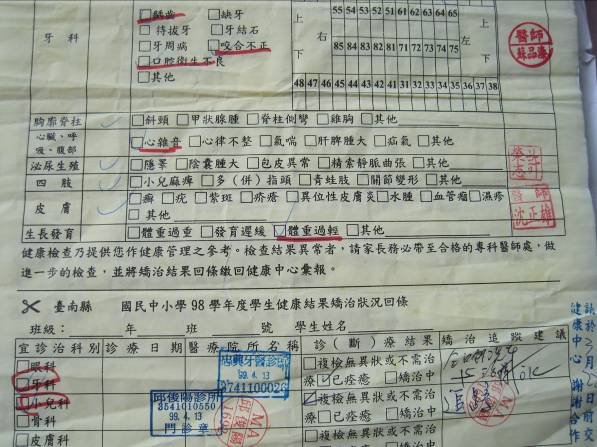 牙科
□齲齒 □缺牙
□待拔牙 □牙結石
□牙周病 □咬合不正
□口腔衛生不良
□其他
上 右 下
55 54 53 52 51 61 62 63 64 65
85 84 83 82 81 71 72 73 74 75
48 47 46 45 44 43 42 41 31 32 33 34 35 36 37 38
上 左 下
醫師
蘇品蓁
胸廓脊柱 □斜頸 □甲狀腺腫 □脊柱側彎 □雞胸 □其他
心臟、呼吸、腹部 □心雜音 □心律不整 □氣喘 □肝脾腫大 □疝氣 □其他
泌尿生殖 □隱睪 □陰囊腫大 □包皮異常 □精索靜脈曲張 □其他
四肢 □小兒麻痺 □多(併)指頭 □青蛙肢 □關節變形 □其他
皮膚 □癬 □疣 □紫斑 □疥瘡 □異位性皮膚炎 □水腫 □血管瘤 □濕疹
□其他
醫師
沈正雄
生長發育 □體重過輕 □發育遲緩 ☑體重過輕 □其他
健康檢查乃提供您作健康管理之參考。檢查結果異常者,請家長務必帶至合格的專科醫師處,做
進一步的檢查,並將矯治結果回條繳回健康中心彙報。
臺南縣 國民中小學98學年度學生健康結果矯治狀況回條
班級: 年 班 號 學生姓名:
宜診治科別 診療日期 醫療院所名稱 診(斷)療結果 矯治追蹤建議
□眼科
□牙科
□小兒科
□骨科
□皮膚科
忠興牙醫診所
99.4.13
3741100026
邱俊陽診所
3541010550
99.4.13
門診章
□複檢無異狀或不需治
療☑已痊癒 □矯治中
☑複檢無異狀或不需治
療□已痊癒 □矯治中
□複檢無異狀或不需治
健康中心 謝謝合作